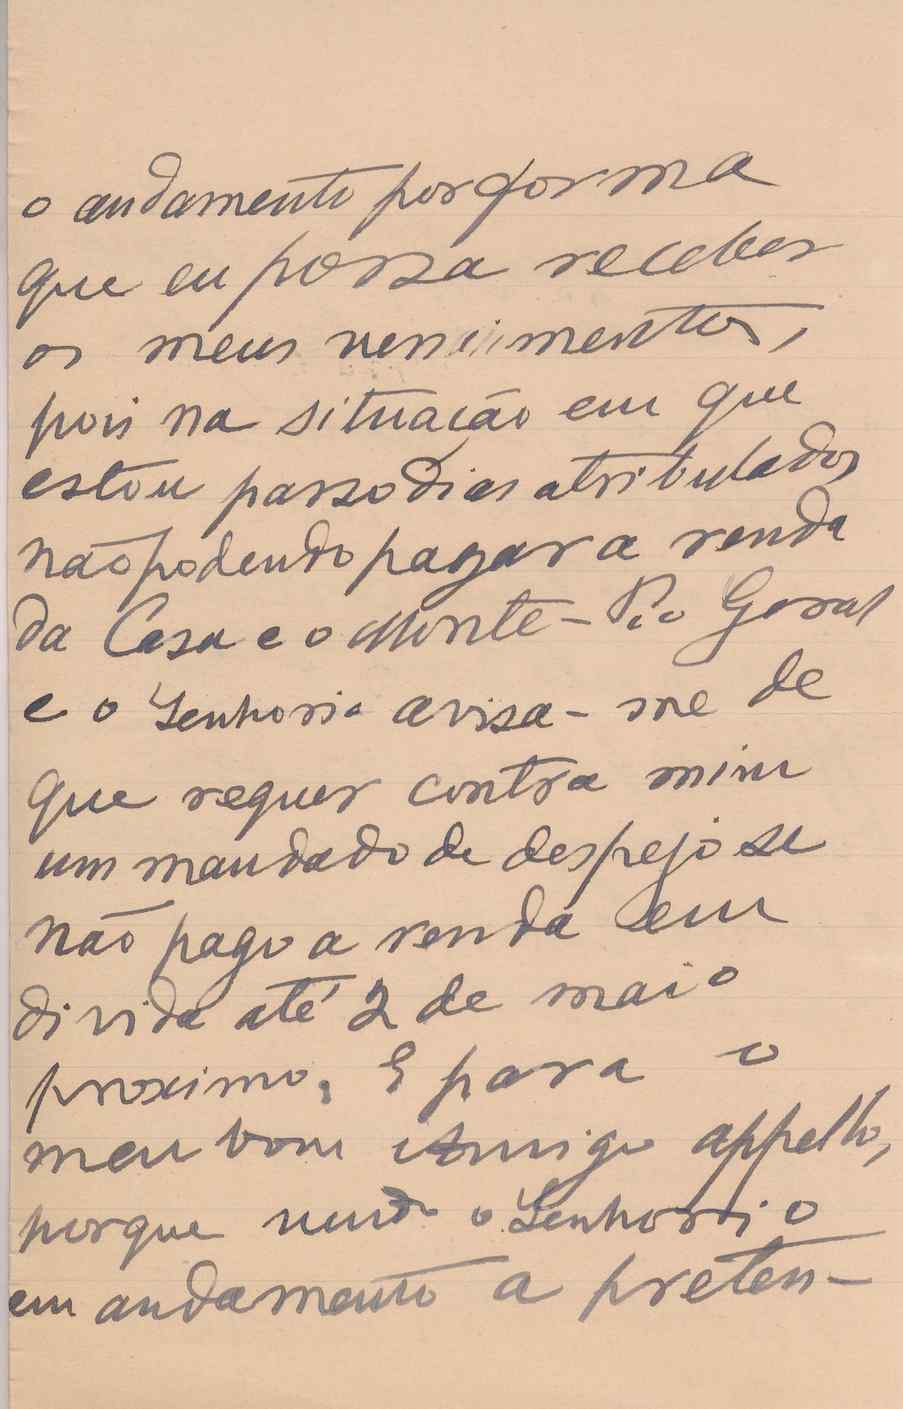 o andamento por forma
que eu possa receber
os meus vencimentos,
pois na situação em que
estou passo dias atribulados
não podendo pagar a renda
da Casa e o Monte-Pio Geral
e o Senhorio avisa-me de
que requer contra mim
um mandado de despejo se
não pago a renda em
divida até 2 de maio
proximo. E para o
meu bom Amigo appello,
porque vendo o Senhorio
em andamento a preten-